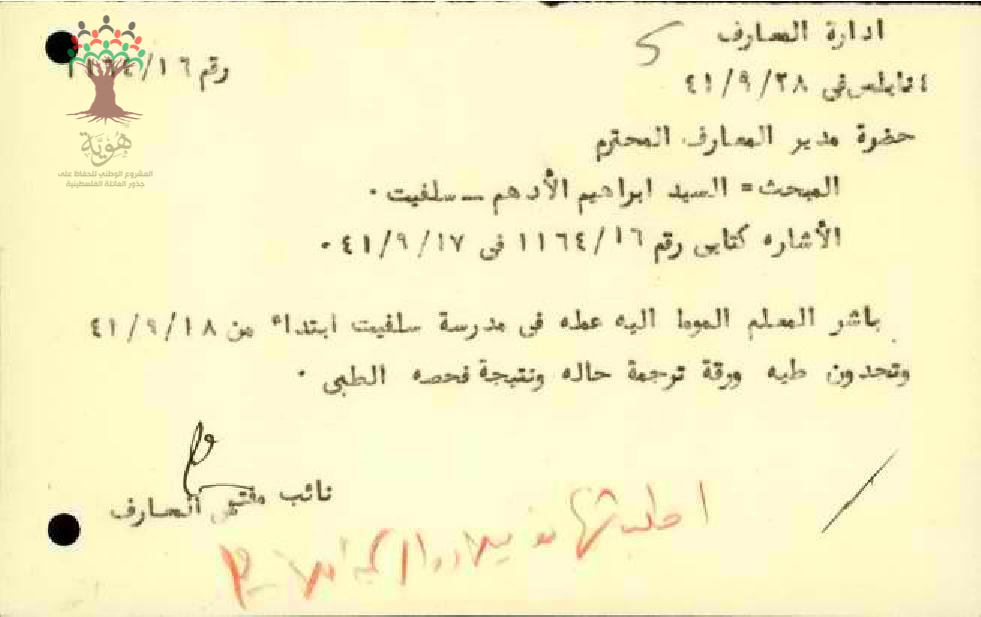 ادارة المعارف
5
نابلس في ٤١/٩/٢٨
رقم ١١٦٤/١٦
هُوِيَّة
المشروع الوطني للحفاظ على
جذور العائلة الفلسطينية
حضرة مدير المعارف المحترم
المبحث = السيد ابراهيم الأدهم ــ سلفيت ٠
الأشاره كتابى رقم ١١٦٤/١٦ فى ٤١/٩/١٧ ٠
باشر المعلم الموما اليه عمله فى مدرسة سلفيت ابتداء من ٤١/٩/١٨
وتجدون طيه ورقة ترجمة حاله ونتيجة فحصه الطبى ٠
نائب مفتش المعارف